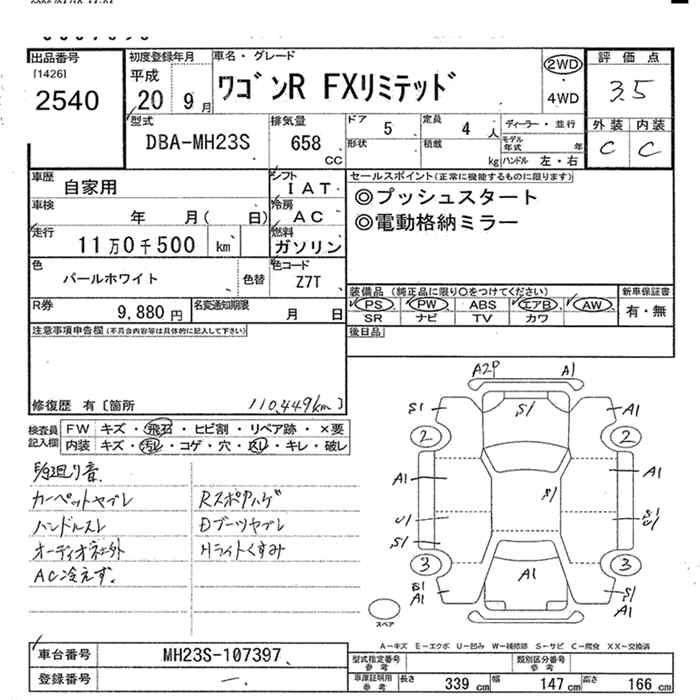 出品番号
[1426]
2540
初度登録年月
平成
20 9 月
車名・グレード
ワゴンR FXリミテッド
2WD
・
4WD
評価点
3.5
外装 内装
C C
型式
DBA-MH23S
排気量
658
CC
ドア
5
形状
定員
4 人
積載
kg
ディーラー・並行
モデル年式 年
ハンドル 左・右
車歴
自家用
車検
年 月( 日)
走行
11万0千500 km
シフト
IAT
冷房
AC
燃料
ガソリン
セールスポイント(正常に機能するものに限ります)
◎プッシュスタート
◎電動格納ミラー
色
パールホワイト
色替
色コード
Z7T
装備品(純正品に限り○をつけてください)
PS PW ABS エアB AW
SR ナビ TV カワ
新車保証書
有・無
R券
9,880 円
名変通知期限
月 日
後日品
注意事項申告欄(不具合内容等は具体的に記入して下さい)
修復歴 有〔箇所
110,449km〕
検査員
記入欄
FW キズ・飛石・ヒビ割・リペア跡・×要
内装 キズ・汚レ・コゲ・穴・スレ・キレ・破レ
カーペットヤブレ
ハンドルスレ
オーディオ社外
AC冷えず.
Dブーツヤブレ
Hライトくすみ
A2P A1
S1 S1 A1
2 2
A1 A1
S1
U1 S1
U1
S1
3 3
A1
B1 S1
A1 A1
スペア
A-キズ E-エクボ U-凹み W-補修跡 S-サビ C-腐食 XX-交換済
車台番号
MH23S-107397
登録番号
型式指定番号
参考
類別区分番号
参考
車庫証明用
参考
長さ 339 cm 幅 147 cm 高さ 166 cm